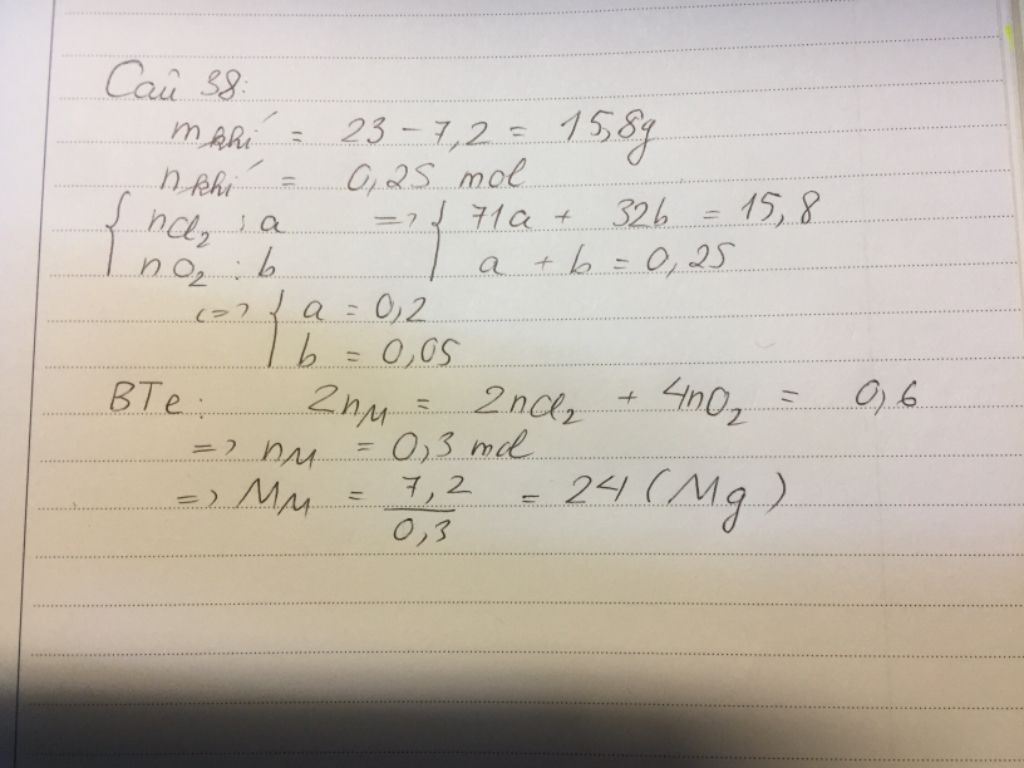 Câu 38:
m khí = 23 - 7,2 = 15,8g
n khí = 0,25 mol
{ nCl2 : a => { 71a + 32b = 15,8
nO2 : b a + b = 0,25
<=> { a = 0,2
b = 0,05
BTe: 2nM = 2nCl2 + 4nO2 = 0,6
=> nM = 0,3 mol
=> MM = 7,2 / 0,3 = 24 (Mg)